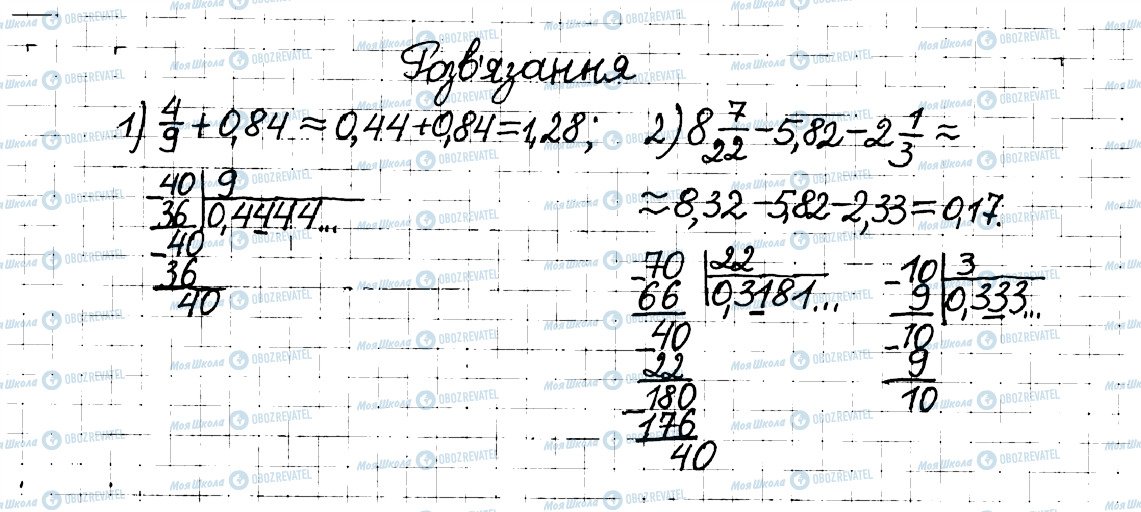 Розв'язання
1) 4/9 + 0,84 ≈ 0,44 + 0,84 = 1,28;
40 | 9
- 36 | 0,4444...
40
- 36
40
2) 8 7/22 - 5,82 - 2 1/3 ≈
≈ 8,32 - 5,82 - 2,33 = 0,17.
70 | 22
- 66 | 0,3181...
40
- 22
180
- 176
40
10 | 3
- 9 | 0,333...
10
- 9
10
Моя Школа OBOZREVATEL